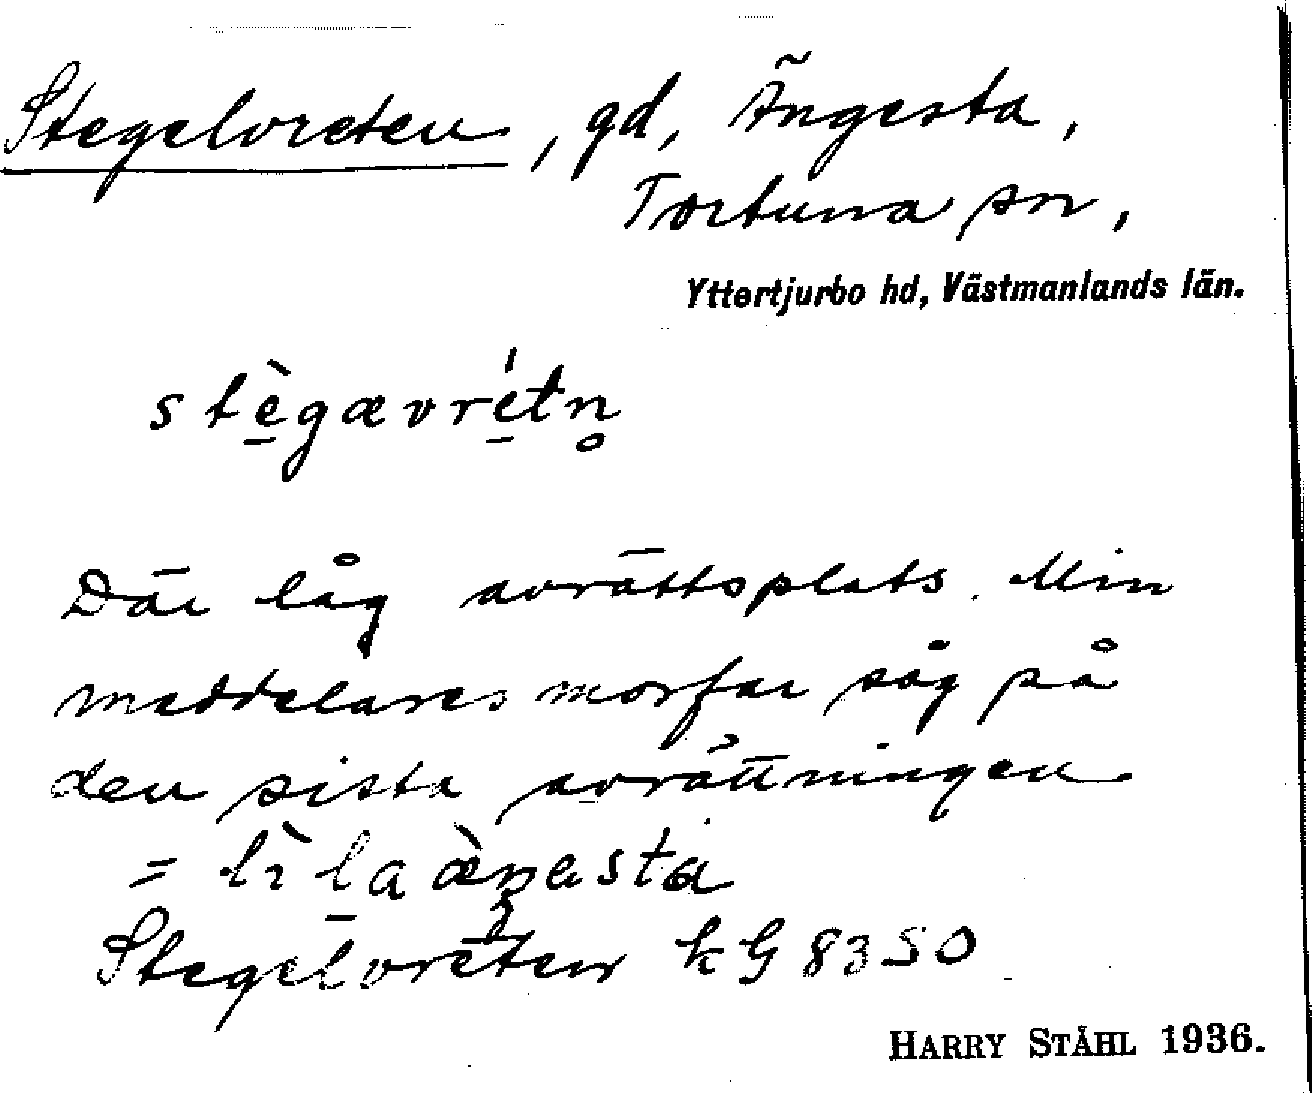 Stegelvreten, gd, Ängesta,
Tortuna sn,
Yttertjurbo hd, Västmanlands län.
stè̠gævré̠tn̥
Där låg avrättsplats. Min
meddelares morfar såg på
den sista avrättningen
= lì l̠a æ̀ŋesta
Stegelvreten kG 83 SO
HARRY STÅHL 1936.